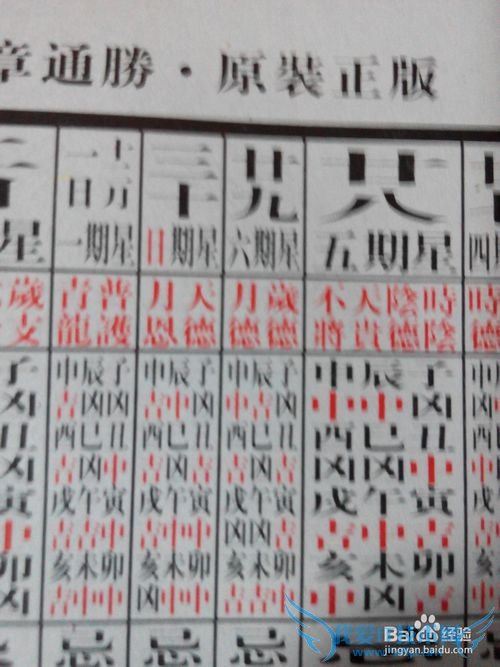 章通勝·原裝正版
廿八
星期五
時陰 陰德 天貴 不將
子辰申
凶中中
丑巳酉
中凶凶
寅午戌
吉中吉
卯未亥
吉凶中
忌
廿九
星期六
歲德 月德
子辰申
凶吉中
丑巳酉
吉凶凶
寅午戌
吉凶凶
卯未亥
中吉吉
忌
三十
星期日
天德 月恩
子辰申
凶中吉
丑巳酉
吉凶吉
寅午戌
中中吉
卯未亥
中中凶
忌
一日
星期一
普護 青龍
子辰申
凶凶吉
丑巳酉
中凶吉
寅午戌
中吉吉
卯未亥
中中吉
忌
星
歲支
子
凶
丑
凶
寅
中
卯
凶
Baidu 经验
jingyan.baidu.com